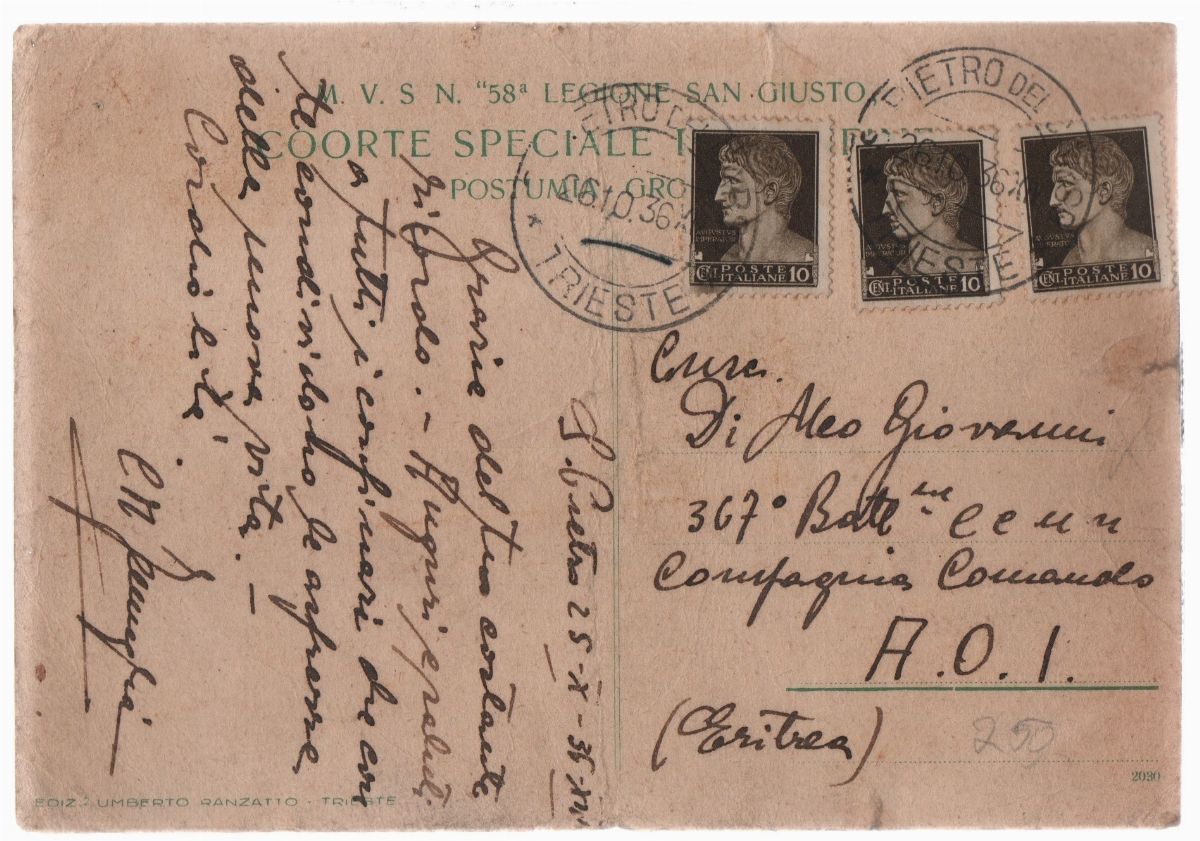 M. V. S N. "58ª LEGIONE SAN GIUSTO,
COORTE SPECIALE
POSTUMIA, GRO
PIETRO DEL
26.10.36.XIV
* TRIESTE
PIETRO DEL
26.10.36.XIV
TRIESTE
AVGVSTVS
IMPERATOR
CENT. POSTE ITALIANE 10
AVGVSTVS
CENT. POSTE ITALIANE 10
AVGVSTVS
IMPERATOR
CENT. POSTE ITALIANE 10
S. Pietro 25-X-
Grazie del tuo costante
ricordo. - Auguri e saluti
a tutti i confinari che con
te condividono le asprezze
della nuova vita. -
Cordialità
Di Meo Giovanni
367° Batt.ne CCNN
Compagnia Comando
A.O.I.
(Eritrea)
250
2030
EDIZ. UMBERTO RANZATTO - TRIESTE